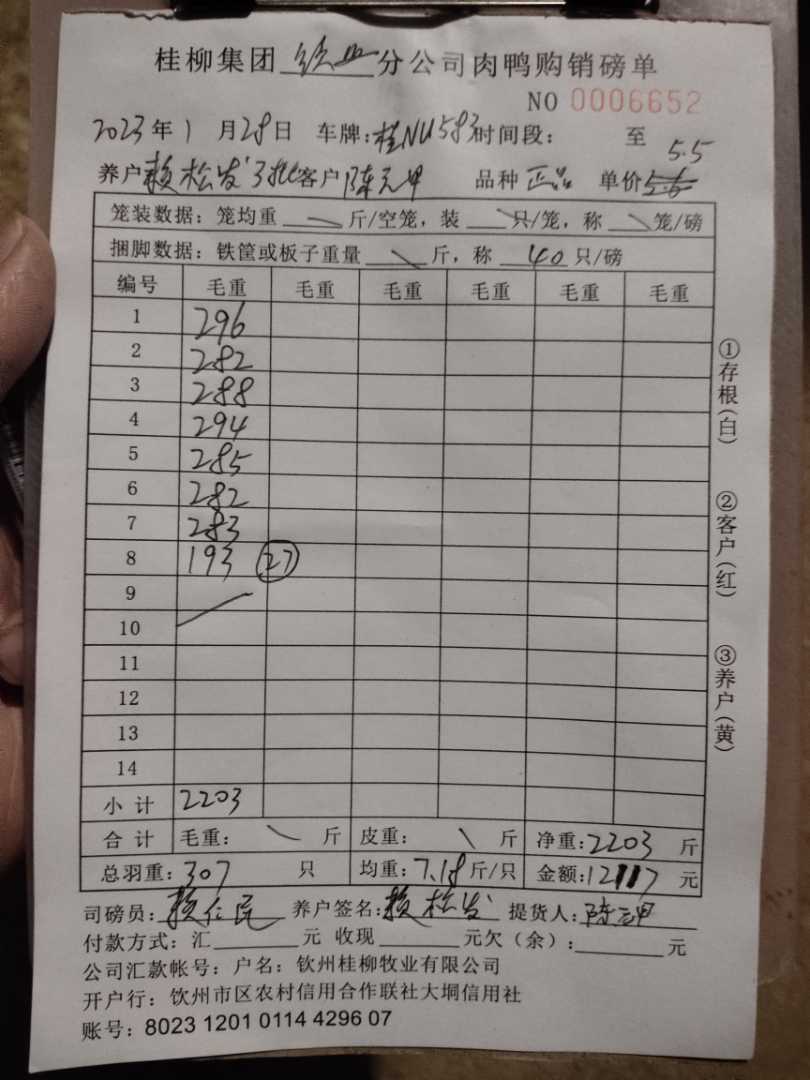 桂柳集团 钦州 分公司肉鸭购销磅单
NO 0006652
2023年1月28日 车牌:桂NU583 时间段: 至
5.5
养户 赖松发 3批 客户 陈元甲 品种 正品 单价 5.6
笼装数据:笼均重 斤/空笼,装 只/笼,称 笼/磅
捆脚数据:铁筐或板子重量 斤,称 40 只/磅
编号 毛重 毛重 毛重 毛重 毛重 毛重
1 296
2 282
3 288
4 294
5 285
6 282
7 283
8 193 27
9
10
11
12
13
14
小计 2203
合计 毛重: 斤 皮重: 斤 净重:2203 斤
总羽重:307 只 均重:7.18 斤/只 金额:12117 元
司磅员:赖仁民 养户签名:赖松发 提货人:陈元甲
付款方式:汇 元 收现 元欠(余): 元
公司汇款帐号:户名:钦州桂柳牧业有限公司
开户行:钦州市区农村信用合作联社大垌信用社
账号:8023 1201 0114 4296 07
①存根(白) ②客户(红) ③养户(黄)